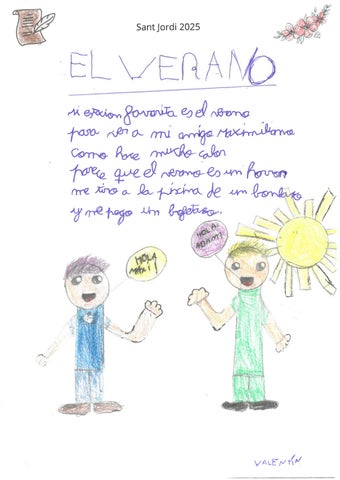 Sant Jordi 2025
EL VERANO
mi estacion favorita es el verano
para ver a mi amigo Maximiliano
como hace mucho calor
parece que el verano es un horror
me tiro a la piscina de un bombazo
y me pego un
HOLA MAXI!
HOLA ADAM!
VALENTÍN